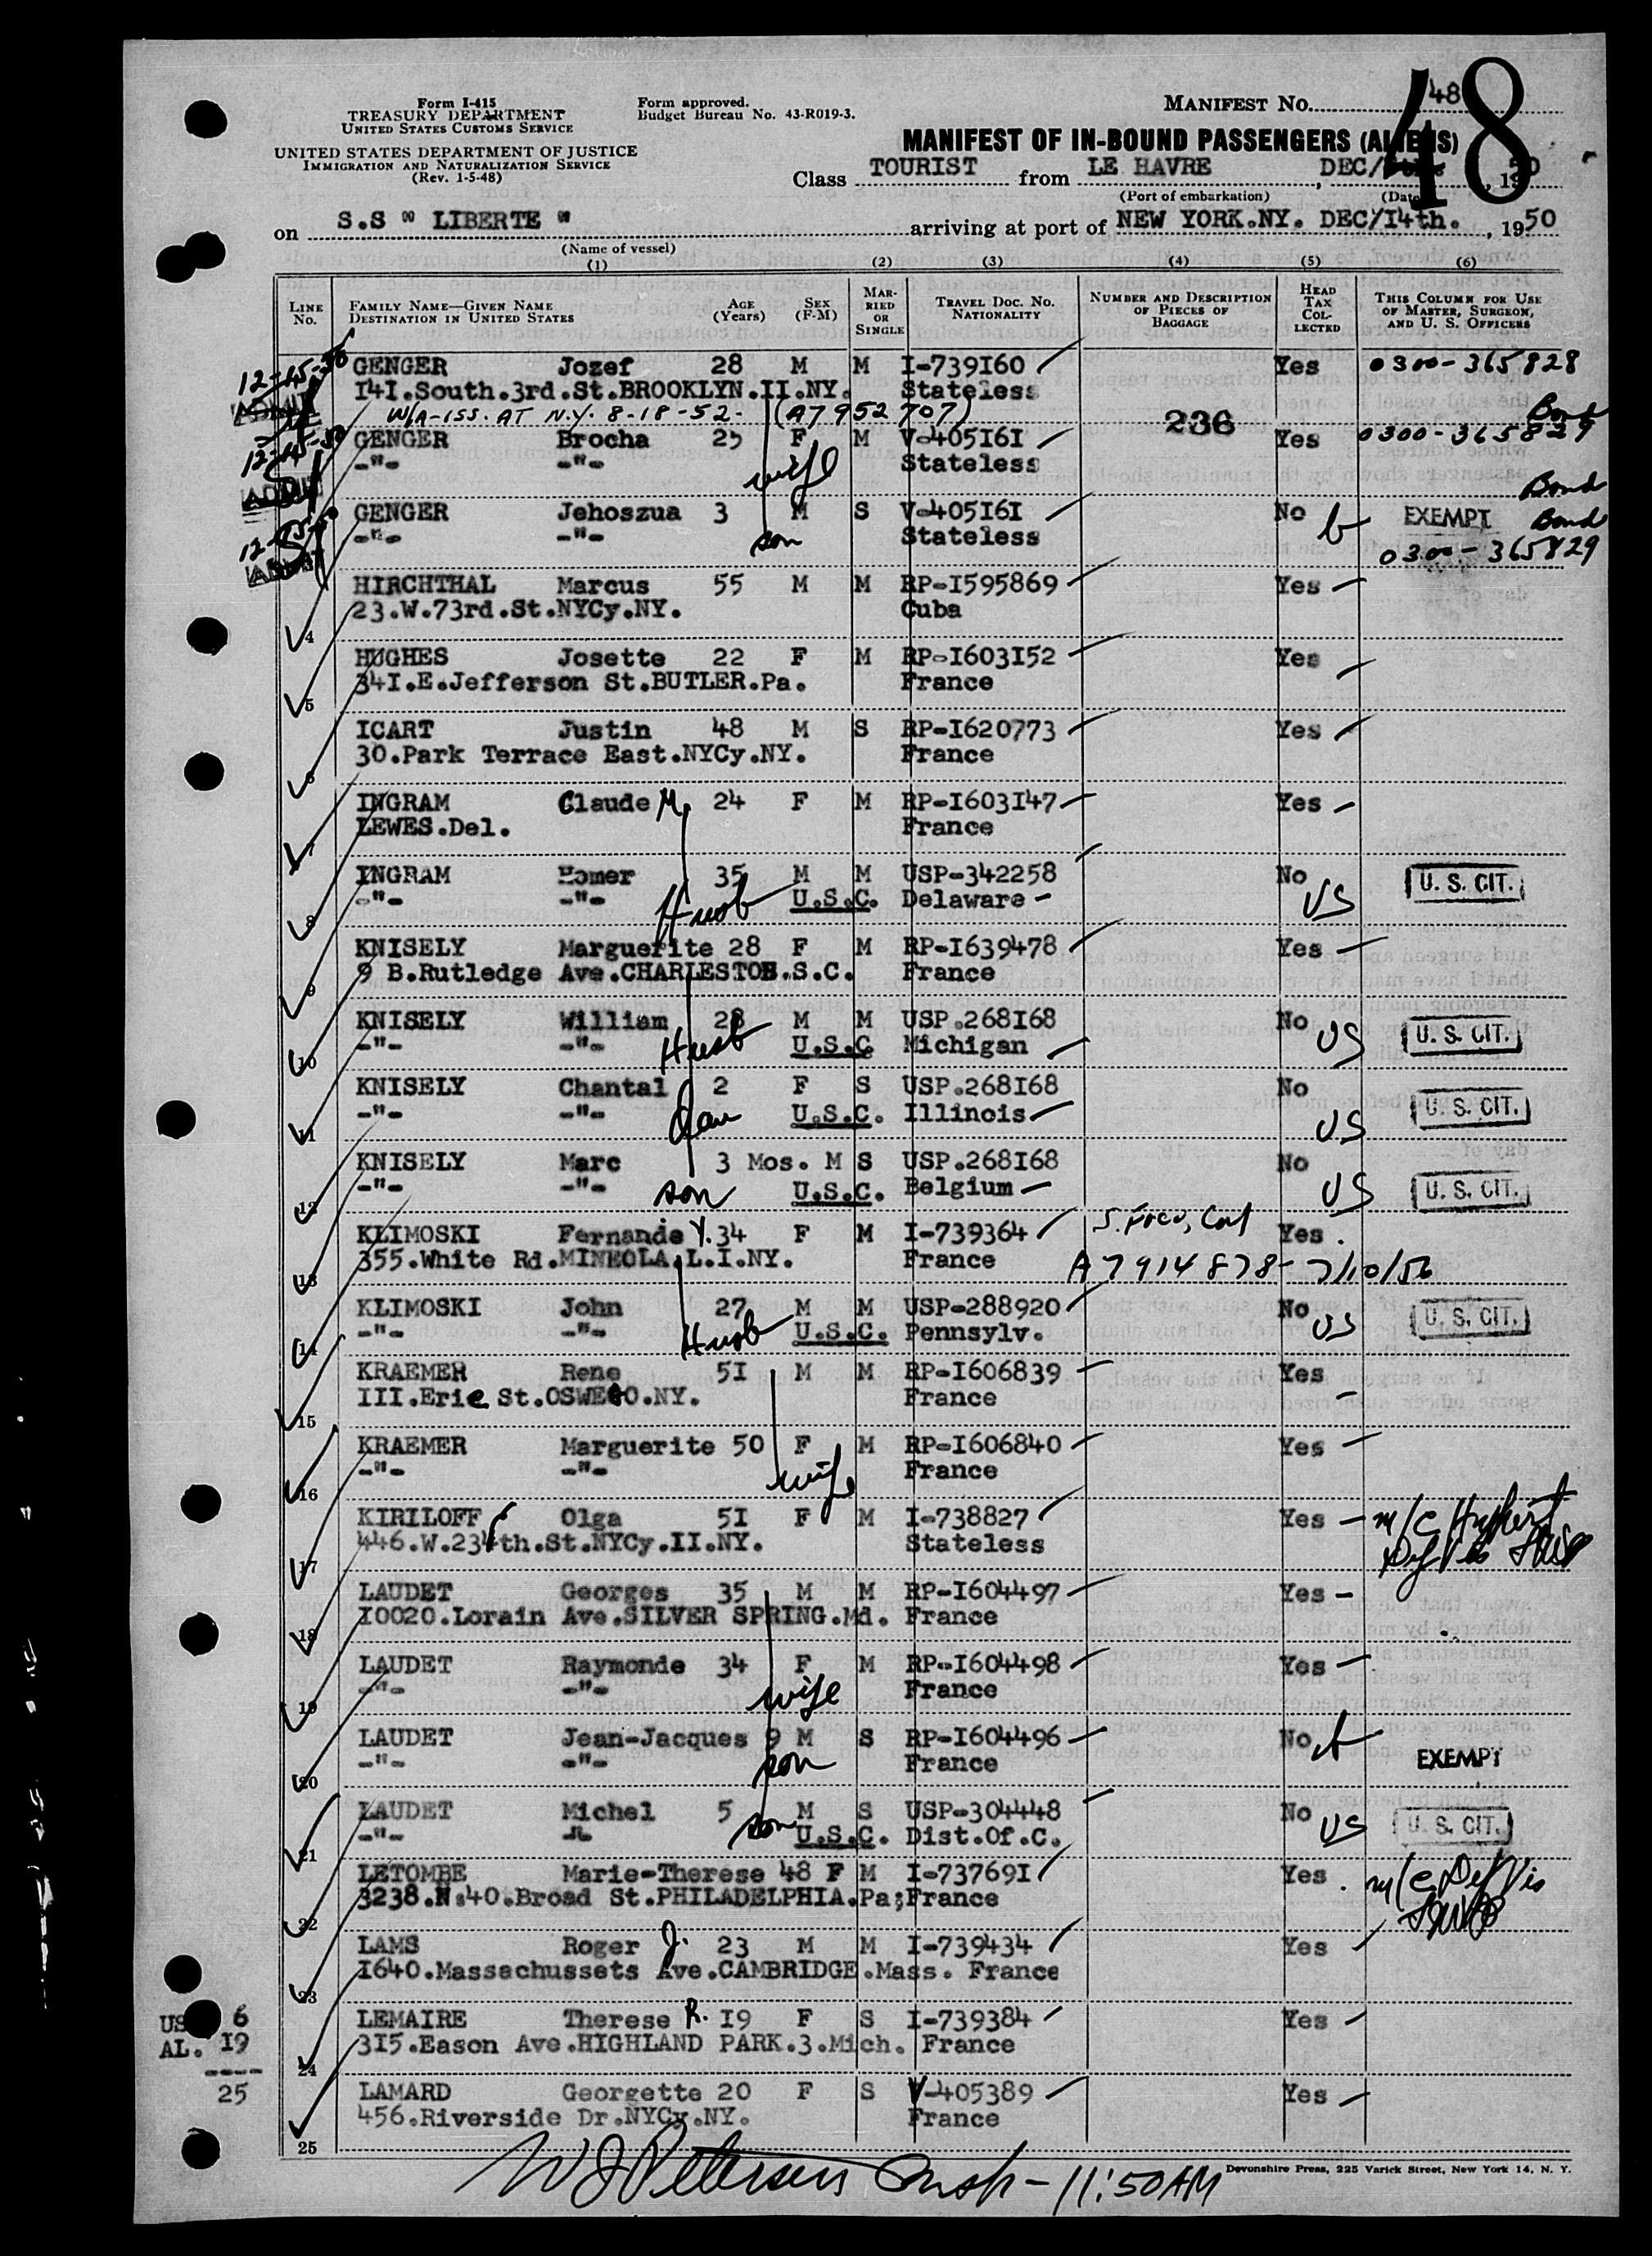 Form I-415
TREASURY DEPARTMENT
UNITED STATES CUSTOMS SERVICE
UNITED STATES DEPARTMENT OF JUSTICE
IMMIGRATION AND NATURALIZATION SERVICE
(Rev. 1-5-48)
Form approved.
Budget Bureau No. 43-R019-3.
MANIFEST No. 48
48
MANIFEST OF IN-BOUND PASSENGERS (ALIENS)
Class TOURIST from LE HAVRE, DEC/ , 1950
(Port of embarkation) (Date)
on S.S " LIBERTE " arriving at port of NEW YORK.NY. DEC/I4th. , 1950
(Name of vessel)
(1) (2) (3) (4) (5) (6)
LINE No. FAMILY NAME—GIVEN NAME DESTINATION IN UNITED STATES AGE (Years) SEX (F-M) MARRIED OR SINGLE TRAVEL DOC. No. NATIONALITY NUMBER AND DESCRIPTION OF PIECES OF BAGGAGE HEAD TAX COLLECTED THIS COLUMN FOR USE OF MASTER, SURGEON, AND U. S. OFFICERS
12-15-50 GENGER Jozef 28 M M I-739I60 Yes 0300-365828
ADMIT I4I.South.3rd.St.BROOKLYN.II.NY. Stateless
W/A-ISS. AT N.Y. 8-18-52- (A7952707) 236 Bond
12-15-50 GENGER Brocha 25 F M V-405I6I Yes 0300-365829
-"- -"- wife Stateless
Bond
GENGER Jehoszua 3 M S V-405I6I No EXEMPT Bond
12-15-50 -"- -"- son Stateless 0300-365829
HIRCHTHAL Marcus 55 M M RP-I595869 Yes
4 23.W.73rd.St.NYCy.NY. Cuba
HUGHES Josette 22 F M RP-I603I52 Yes
5 34I.E.Jefferson St.BUTLER.Pa. France
ICART Justin 48 M S RP-I620773 Yes
6 30.Park Terrace East.NYCy.NY. France
INGRAM Claude M. 24 F M RP-I603I47 Yes
7 LEWES.Del. France
INGRAM Homer 35 M M USP-342258 No U. S. CIT.
8 -"- -"- Husb U.S.C. Delaware US
KNISELY Marguerite 28 F M RP-I639478 Yes
9 9 B.Rutledge Ave.CHARLESTON.S.C. France
KNISELY William 28 M M USP.268I68 No U. S. CIT.
10 -"- -"- Husb U.S.C Michigan US
KNISELY Chantal 2 F S USP.268I68 No U. S. CIT.
11 -"- -"- dau U.S.C. Illinois US
KNISELY Marc 3 Mos. M S USP.268I68 No
12 -"- -"- son U.S.C. Belgium US U. S. CIT.
KLIMOSKI Fernande Y. 34 F M I-739364 Yes
13 355.White Rd.MINEOLA.L.I.NY. France A7914878- 7/10/56
KLIMOSKI John 27 M M USP-288920 No U. S. CIT.
14 -"- -"- Husb U.S.C. Pennsylv. US
KRAEMER Rene 5I M M RP-I606839 Yes
15 III.Erie St.OSWEGO.NY. France
KRAEMER Marguerite 50 F M RP-I606840 Yes
16 -"- -"- wife France
KIRILOFF Olga 5I F M I-738827 Yes m/c
17 446.W.234th.St.NYCy.II.NY. Stateless
LAUDET Georges 35 M M RP-I604497 Yes
18 I0020.Lorain Ave.SILVER SPRING.Md. France
LAUDET Raymonde 34 F M RP-I604498 Yes
19 -"- -"- wife France
LAUDET Jean-Jacques 9 M S RP-I604496 No
20 -"- -"- son France EXEMPT
LAUDET Michel 5 M S USP-304448 No U. S. CIT.
21 -"- -"- son U.S.C. Dist.Of.C. US
LETOMBE Marie-Therese 48 F M I-73769I Yes m/c
22 3238.N.40.Broad St.PHILADELPHIA.Pa; France
LAMS Roger J. 23 M M I-739434 Yes
23 I640.Massachussets Ave.CAMBRIDGE.Mass. France
LEMAIRE Therese R. I9 F S I-739384 Yes
24 3I5.Eason Ave.HIGHLAND PARK.3.Mich. France
LAMARD Georgette 20 F S V-405389 Yes
25 456.Riverside Dr.NYCy.NY. France
US 6
AL. I9
----
25
W J Petersen Insp - 11:50AM
Devonshire Press, 225 Varick Street, New York 14, N. Y.